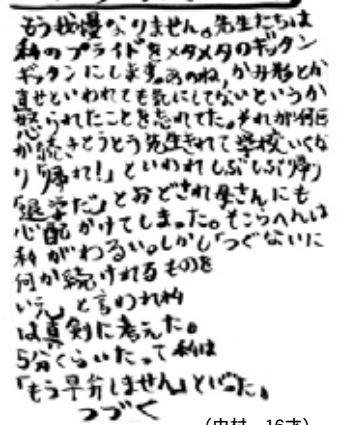 もう我慢なりません。先生たちは
私のプライドをメタメタのギッタン
ギッタンにします。あのね、かみ形とか
直せといわれても気にしてないというか
怒られたことを忘れてた。それが何回
か続きとうとう先生きれて学校いくな
り「帰れ!」といわれしぶしぶ帰り
「退学だ」とおどされ母さんにも
心配かけてしまった。そこらへんは
私がわるい。しかし「つぐないに
何か続けれるものを
いえ」と言われ私
は真剣に考えた。
5分くらいたって私は
「もう早弁しません」といった。
つづく
(中村 16才)